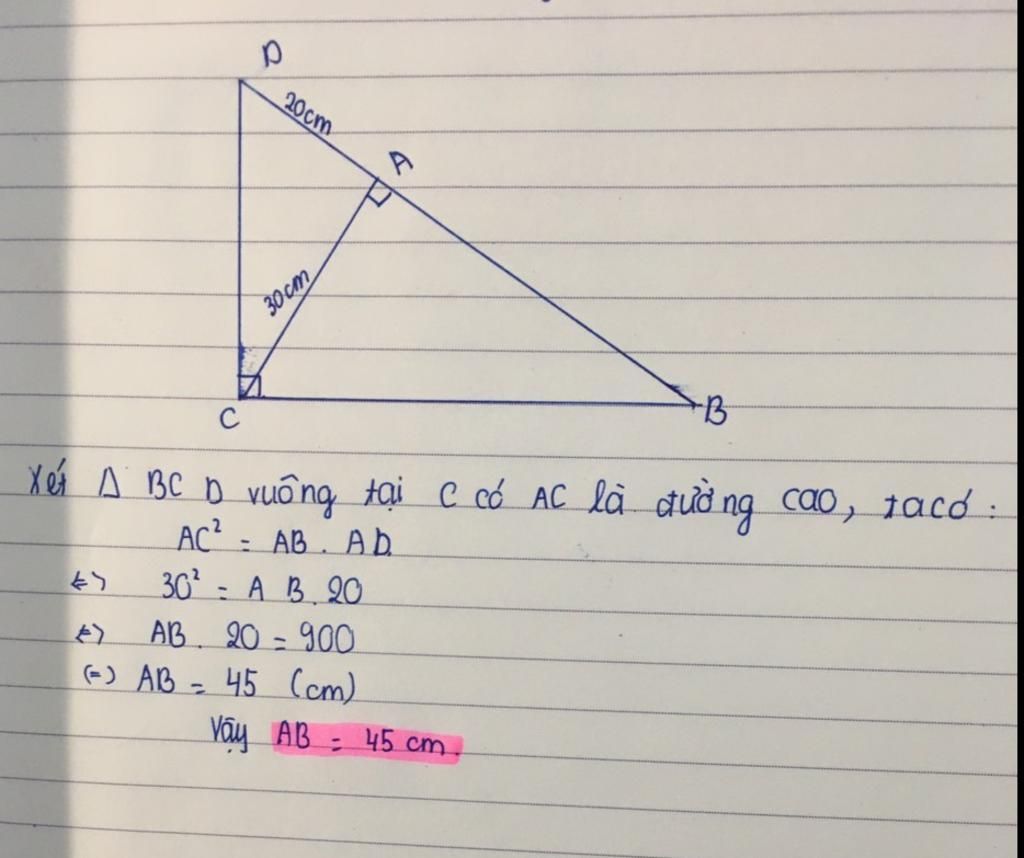 D
20cm
A
30cm
C
B
Xét Δ BCD vuông tại C có AC là đường cao, ta có:
AC² = AB . AD
<=> 30² = AB . 20
<=> AB . 20 = 900
(=) AB = 45 (cm)
Vậy AB = 45 cm.